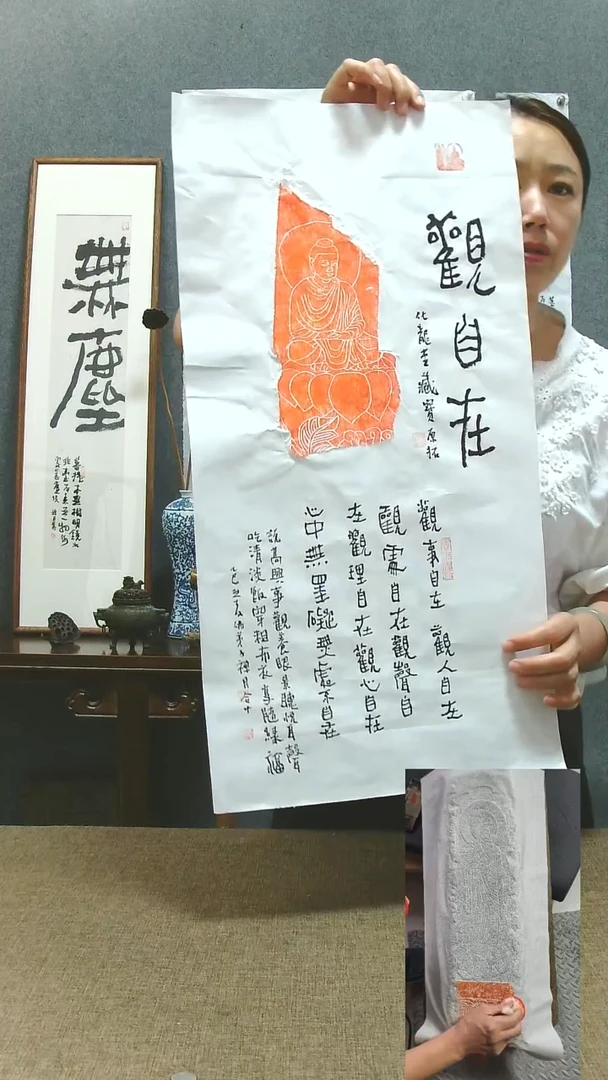 觀自在
化龍堂藏寶原拓
觀事自在 觀人自在
觀自在觀聲自
在觀理自在觀心自在
心中無罣礙無處不自在
說高興事觀養眼景聽悅耳聲
吃清淡飯穿粗布衣享隨緣福
乙巳夏佛弟子禪月合十
無塵
菩提本無樹明鏡亦
非臺本來無一物何
處惹塵埃